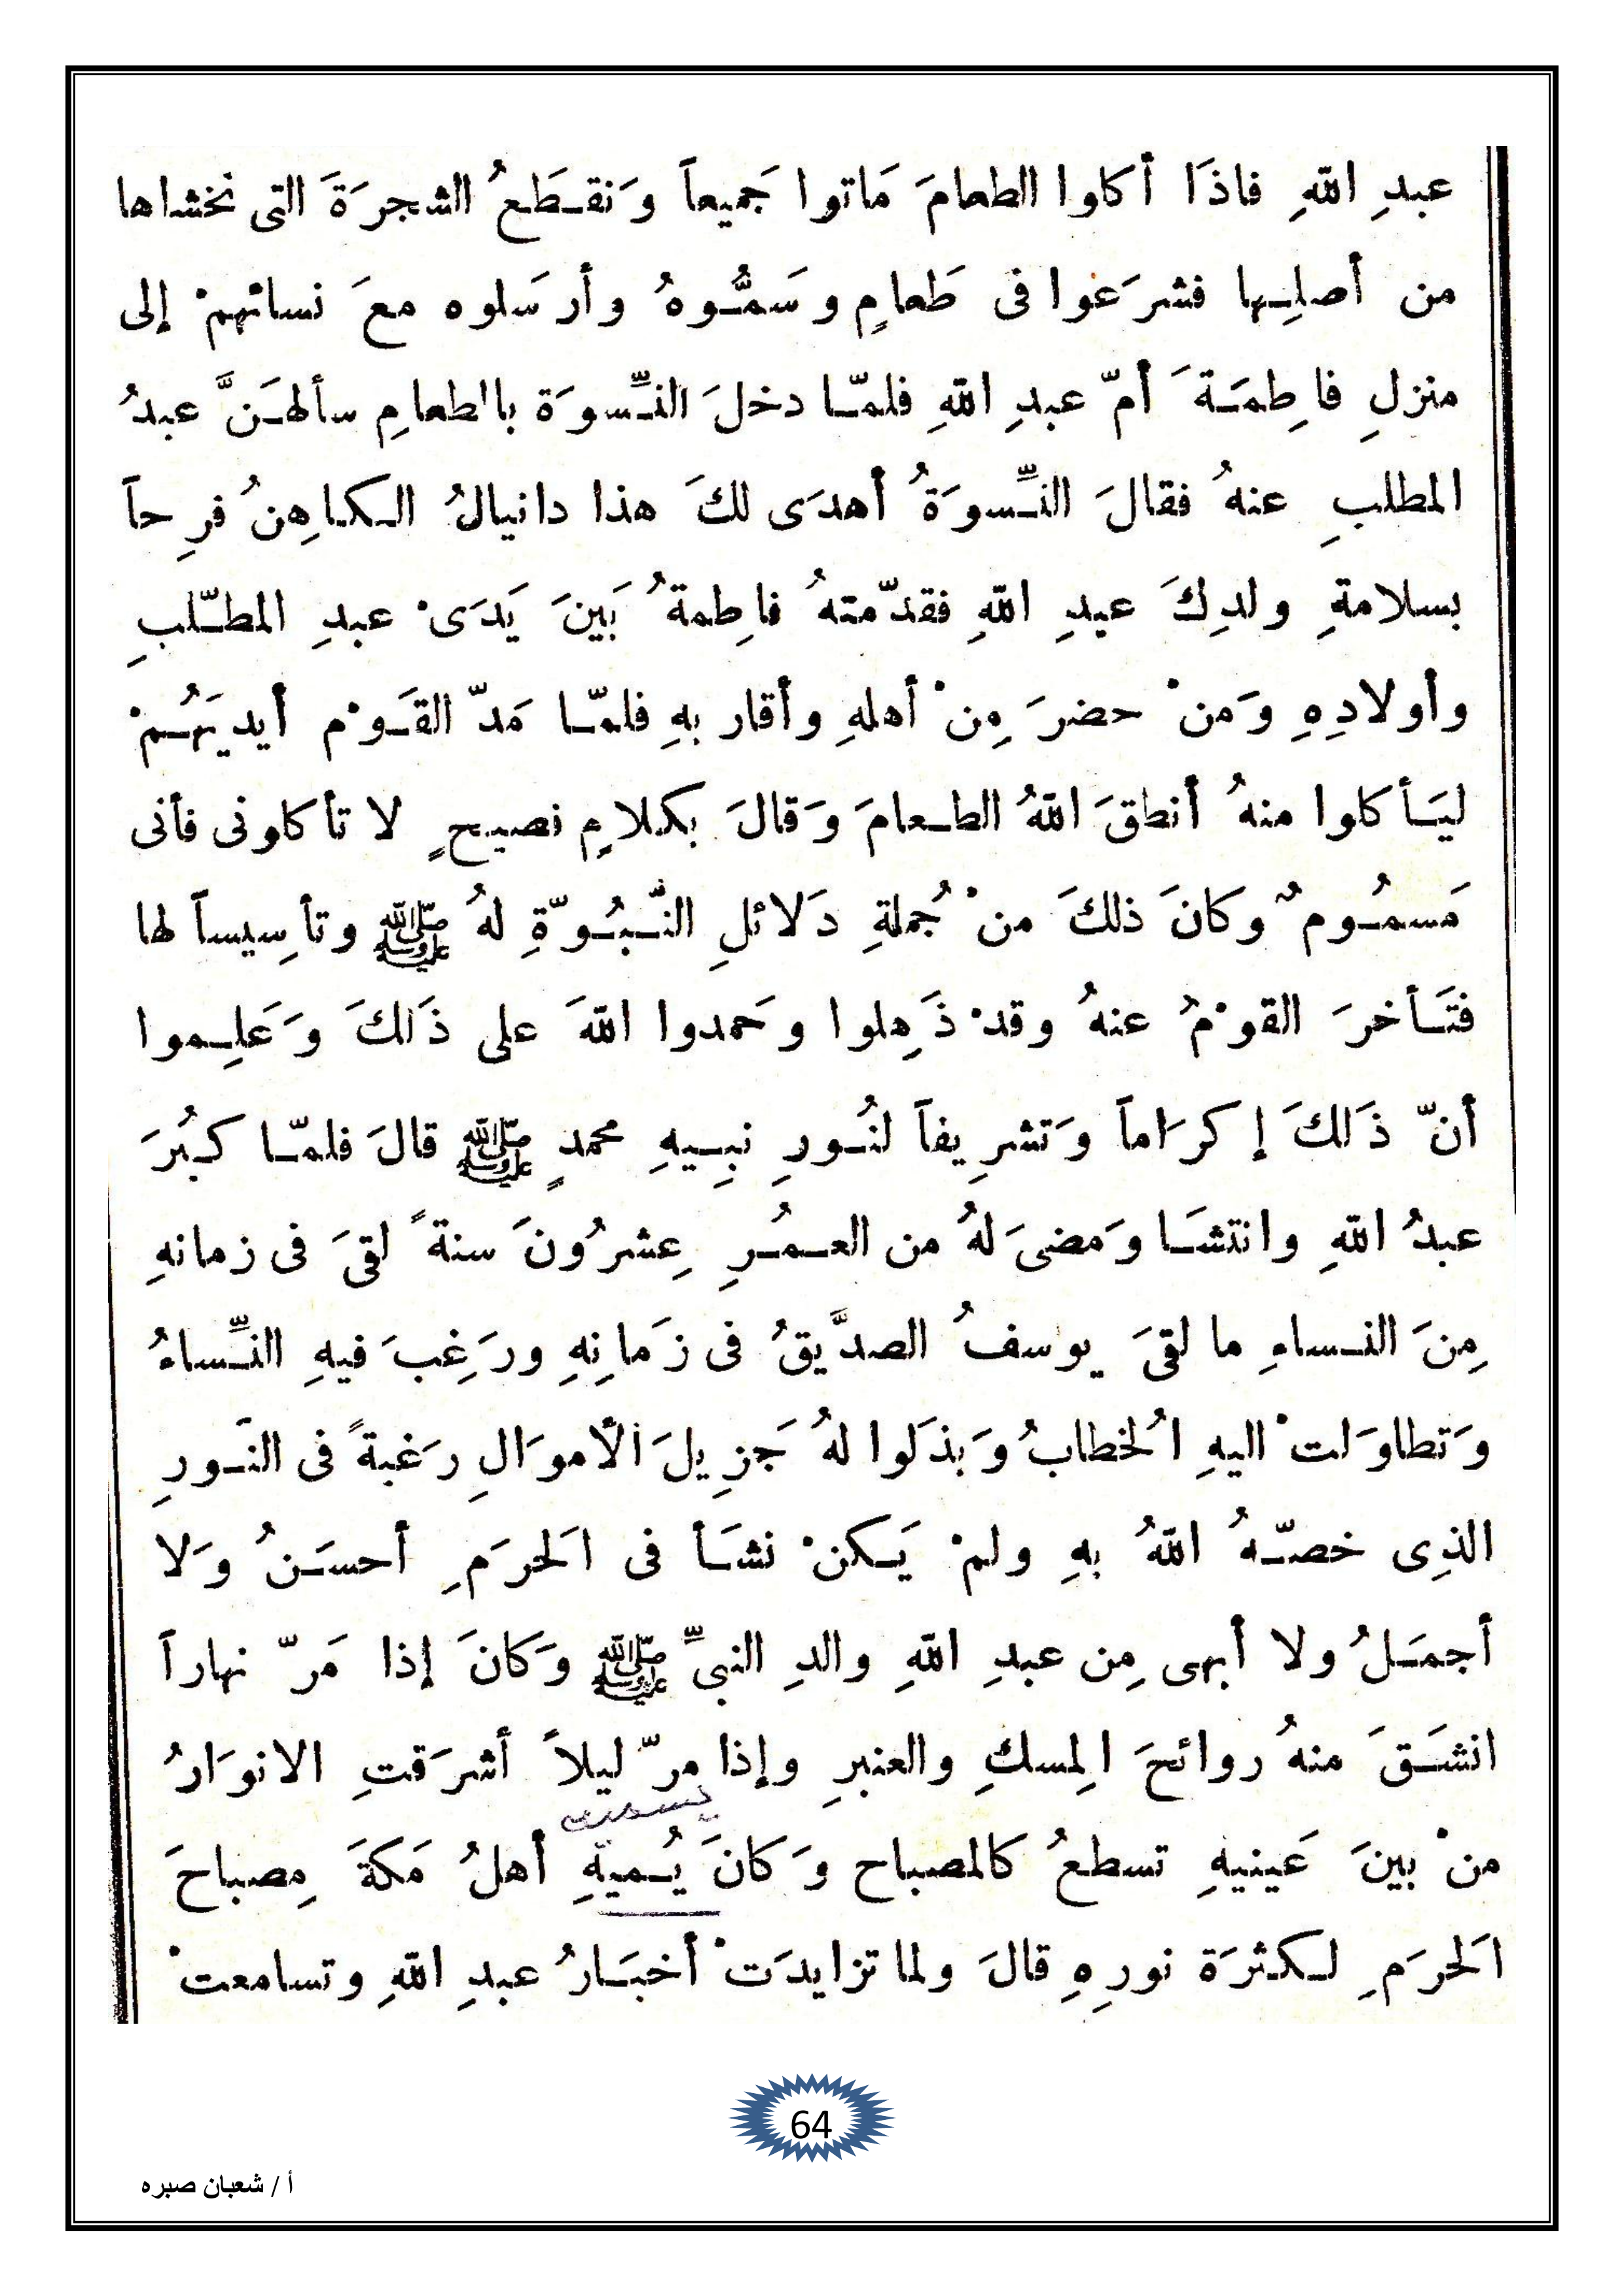 عبدِ اللهِ فاذَا أكلوا الطعامَ مَاتوا جَميعاً وَنقـطَعُ الشجرَةَ التى نخشاها
من أصلِـها فشرَعوا فى طَعامٍ وسَمُّـوهُ وأرسَلوه معَ نسائهمْ إلى
منزلِ فاطِمَـةَ أمّ عبدِ اللهِ فلمّـا دخلَ النِّـسوَة بالطعامِ سألهَـنَّ عبدُ
المطلبِ عنهُ فقالَ النِّـسوَةُ أهدَى لكَ هذا دانيالُ الـكاهِنُ فرِحاً
بسلامةِ ولدِكَ عبدِ اللهِ فقدّمتهُ فاطِمةُ بَينَ يَدَىْ عبدِ المطـّلبِ
وأولادِهِ وَمنْ حضرَ مِنْ أهلهِ وأقاربهِ فلمّـا مَدّ القَـوْم أيديَهُـمْ
ليَـأكلوا منهُ أنطقَ اللهُ الطـعامَ وَقالَ بكلامٍ فصيحٍ لا تأكلونى فأنى
مَسمُـومٌ وكانَ ذلكَ منْ جُملةِ دَلائلِ النُّـبُـوّةِ لهُ ﷺ وتأسِيساً لها
فتَـأخرَ القوْمُ عنهُ وقدْ ذَهِلوا وحَمدوا اللهَ على ذَلكَ وَعَلِـموا
أنّ ذَلكَ إكرَاماً وَتشرِيفاً لنُـورِ نبِـيهِ محمدٍ ﷺ قالَ فلمّـا كبُرَ
عبدُ اللهِ وانتشَـا وَمضىَ لهُ من العـمُـرِ عِشرُونَ سنةً لقىَ فى زمانهِ
مِنَ النـساءِ ما لقىَ يوسفُ الصدَّيقُ فى زَمانِهِ ورَغِبَ فيهِ النِّـساءُ
وَتطاوَلتْ اليهِ الُخطابُ وَبذَلوا لهُ جَزِيلَ الأموَالِ رَغبةً فى النـورِ
الذِى خصّـهُ اللهُ بهِ ولمْ يَـكنْ نشَـأ فى الَحرَمِ أحسَـنُ وَلا
أجمَـلُ ولا أبهى مِن عبدِ اللهِ والدِ النبىِّ ﷺ وَكانَ إذا مَرّ نهاراً
انشَـقَ منهُ روائحَ الِمسكِ والعنبرِ وإذا مرّ ليلاً أشرَقتِ الانوَارُ
يسميه
منْ بينَ عَينيهِ تسطعُ كالمصباح وَكانَ يُـميهِ أهلُ مَكةَ مِصباحَ
الَحرَمِ لـكثرَة نورِهِ قالَ ولما تزايدَتْ أخبَـارُ عبدِ اللهِ وتسامعتْ
64
أ / شعبان صبره